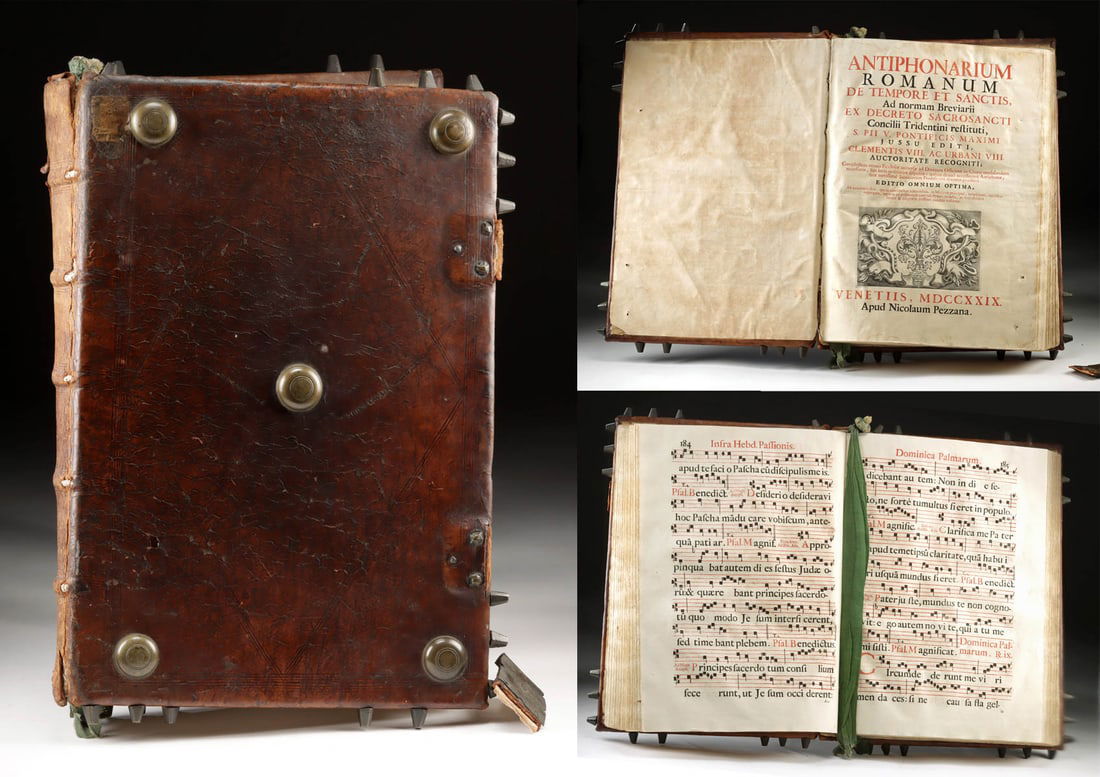 ANTIPHONARIUM
ROMANUM
DE TEMPORE ET SANCTIS,
Ad normam Breviarii
EX DECRETO SACROSANCTI
Concilii Tridentini reſtituti,
S. PII V. PONTIFICIS MAXIMI
JUSSU EDITI,
CLEMENTIS VIII. AC URBANI VIII.
AUCTORITATE RECOGNITI;
EDITIO OMNIUM OPTIMA,
VENETIIS, MDCCXXIX.
Apud Nicolaum Pezzana.
184 Infra Hebd. Paſſionis.
apud te faci o Paſcha cũ diſcipulis me is.
Pſal. Benedict. Deſiderio deſideravi
hoc Paſcha mãdu care vobiſcum, ante-
quã pati ar. Pſal. Magnif. Appro
pinqua bat autem di es feſtus Judæ o-
rũ & quære bant principes ſacerdo-
tũ quo modo Je ſum interfi cerent,
ſed time bant plebem. Pſal. Benedictus
Principes ſacerdo tum conſi lium
fece runt, ut Je ſum occi derent
Dominica Palmarum. 185
dicebant au tem: Non in di e fe-
ſto, ne fortè tumultus fi eret in populo.
Magnific. Clarifica me Pa ter
apud temetipſũ claritate, quã ha bu i
ri uſquã mundus fi eret. Pſal. Benedict.
Pater ju ſte, mundus te non cogno-
vit: e go autem no vi te, qui a tu me
mi ſiſti. Pſal. Magnificat. Dominica Pal-
marum. R. ix.
Ircumde de runt me vi ri
men da ces: ſi ne cau ſa fla gel-